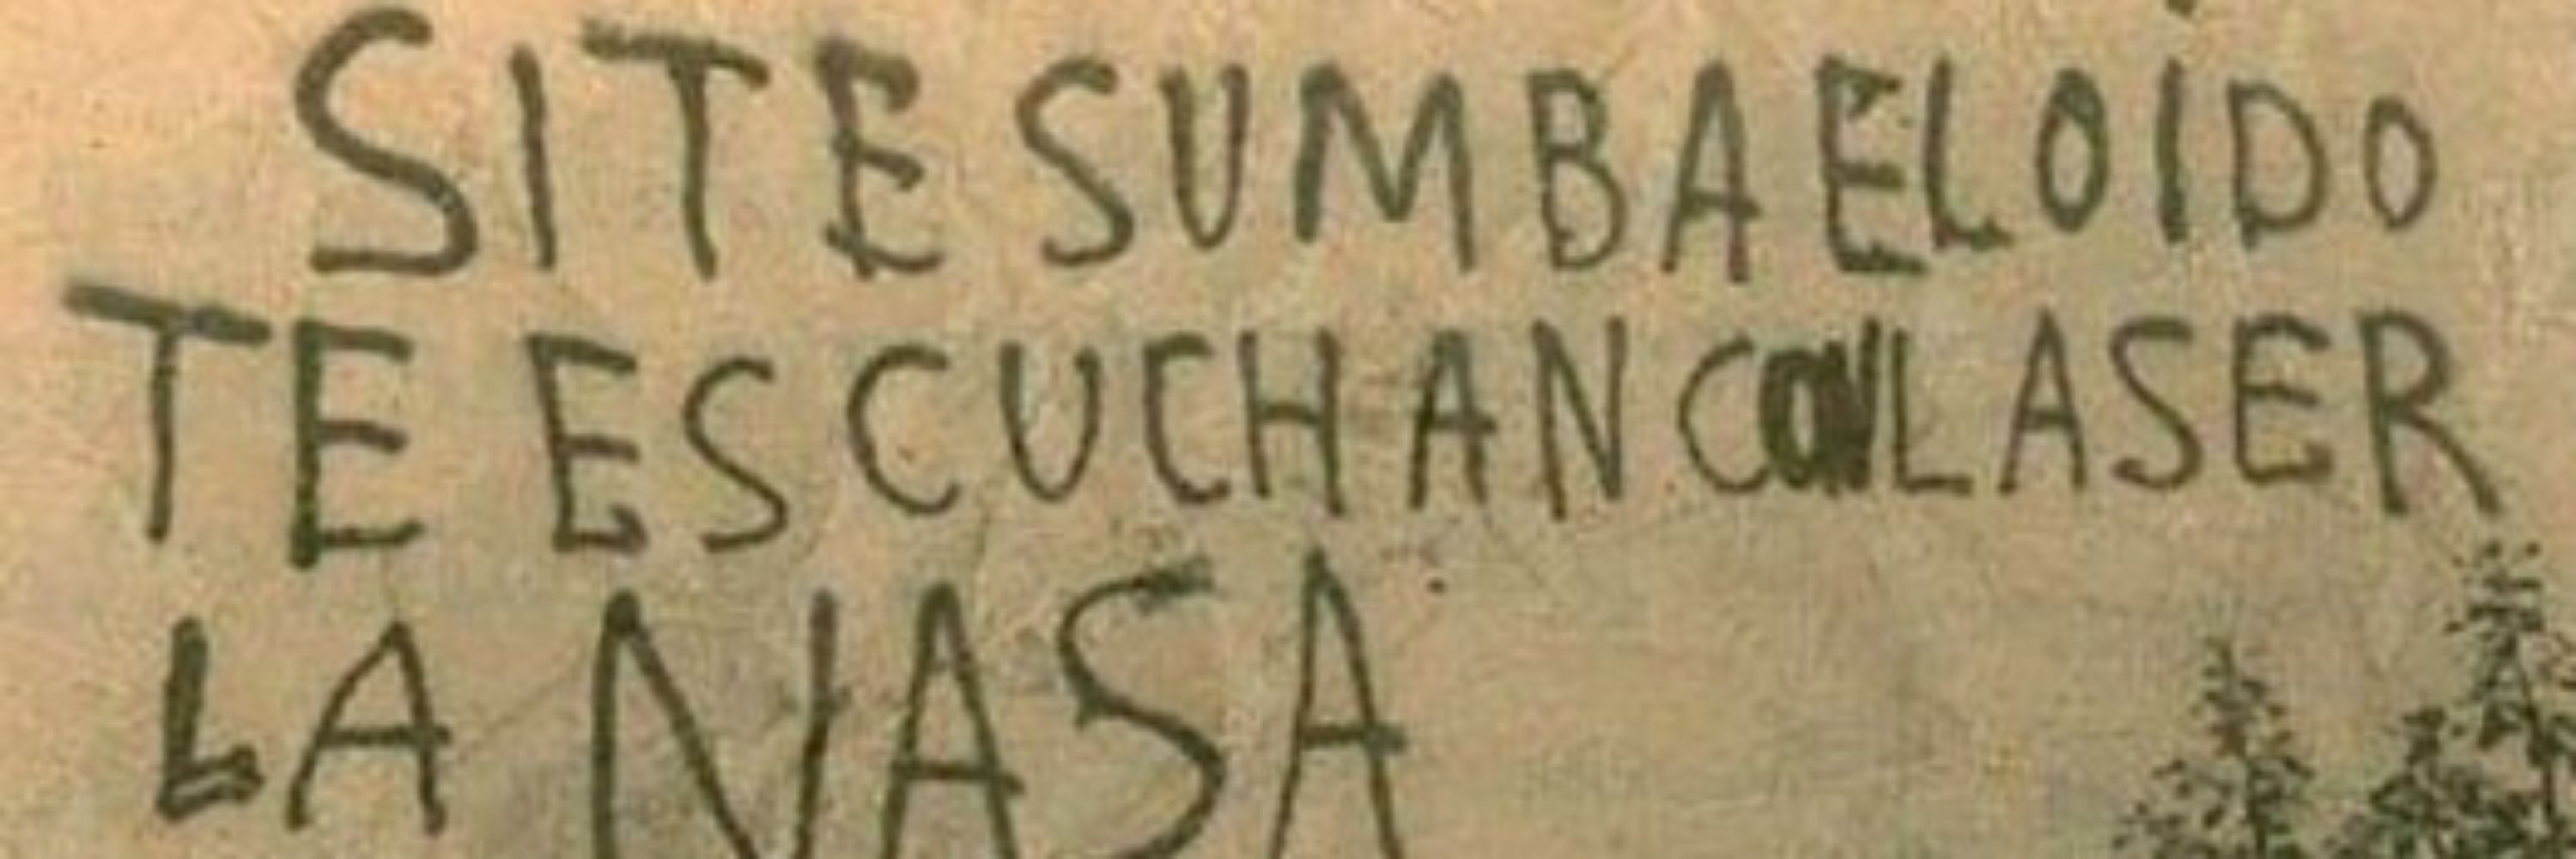 SI TE SUMBA EL OIDO
TE ESCUCHAN CON LASER
LA NASA